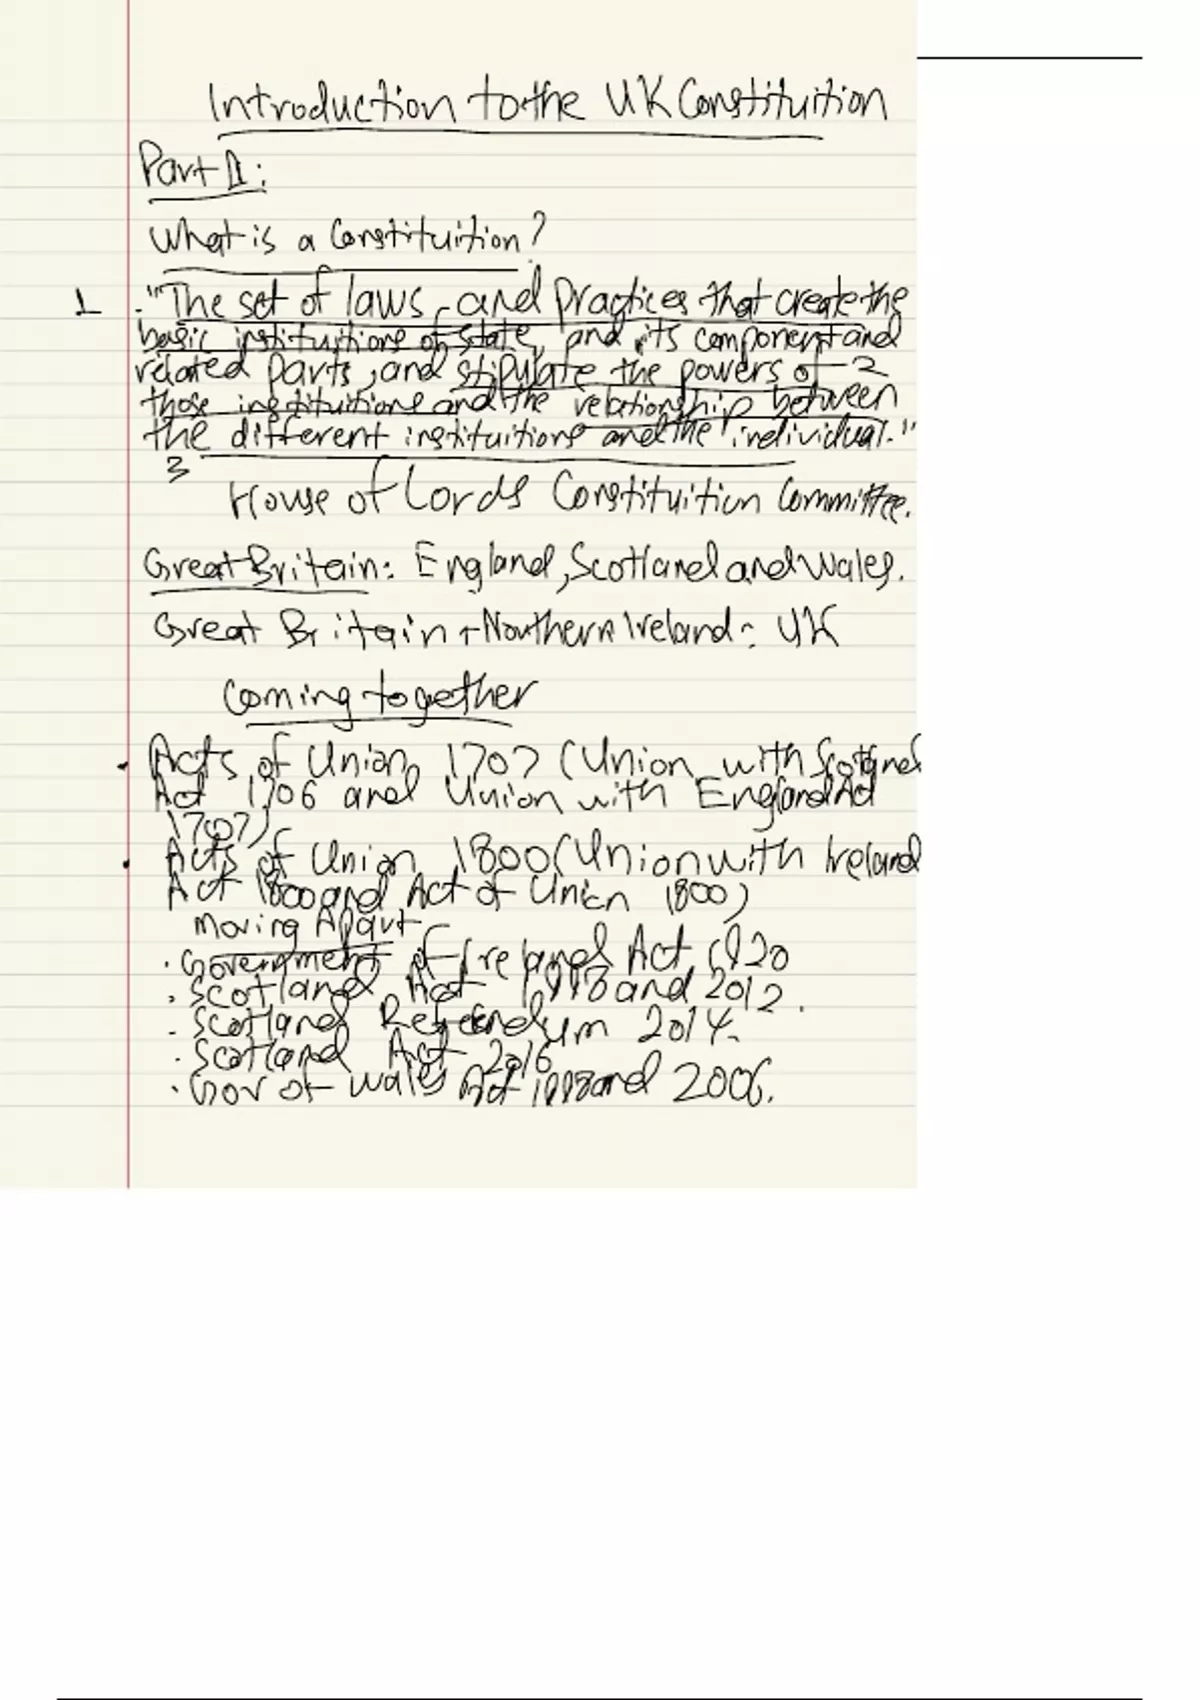 Introduction to the UK Constituition
Part 1:
What is a Constituition?
1 . "The set of laws and practices that create the
basic instituitions of state, and its component and
related parts, and stipulate the powers of - 2
those instituitions and the relationship between
the different instituitions and the individual."
3
House of Lords Constituition Committee.
Great Britain: England, Scotland and Wales.
Great Britain + Northern Ireland = UK
Coming together
• Acts of Union 1707 (Union with Scotland
Act 1706 and Union with England Act
1707)
• Acts of Union 1800 (Union with Ireland
Act 1800 and Act of Union 1800)
Moving Apart
• Government of Ireland Act 1920
• Scotland Act 1998 and 2012.
- Scotland Referendum 2014.
• Scotland Act 2016
• Gov of Wales Act 1998 and 2006.